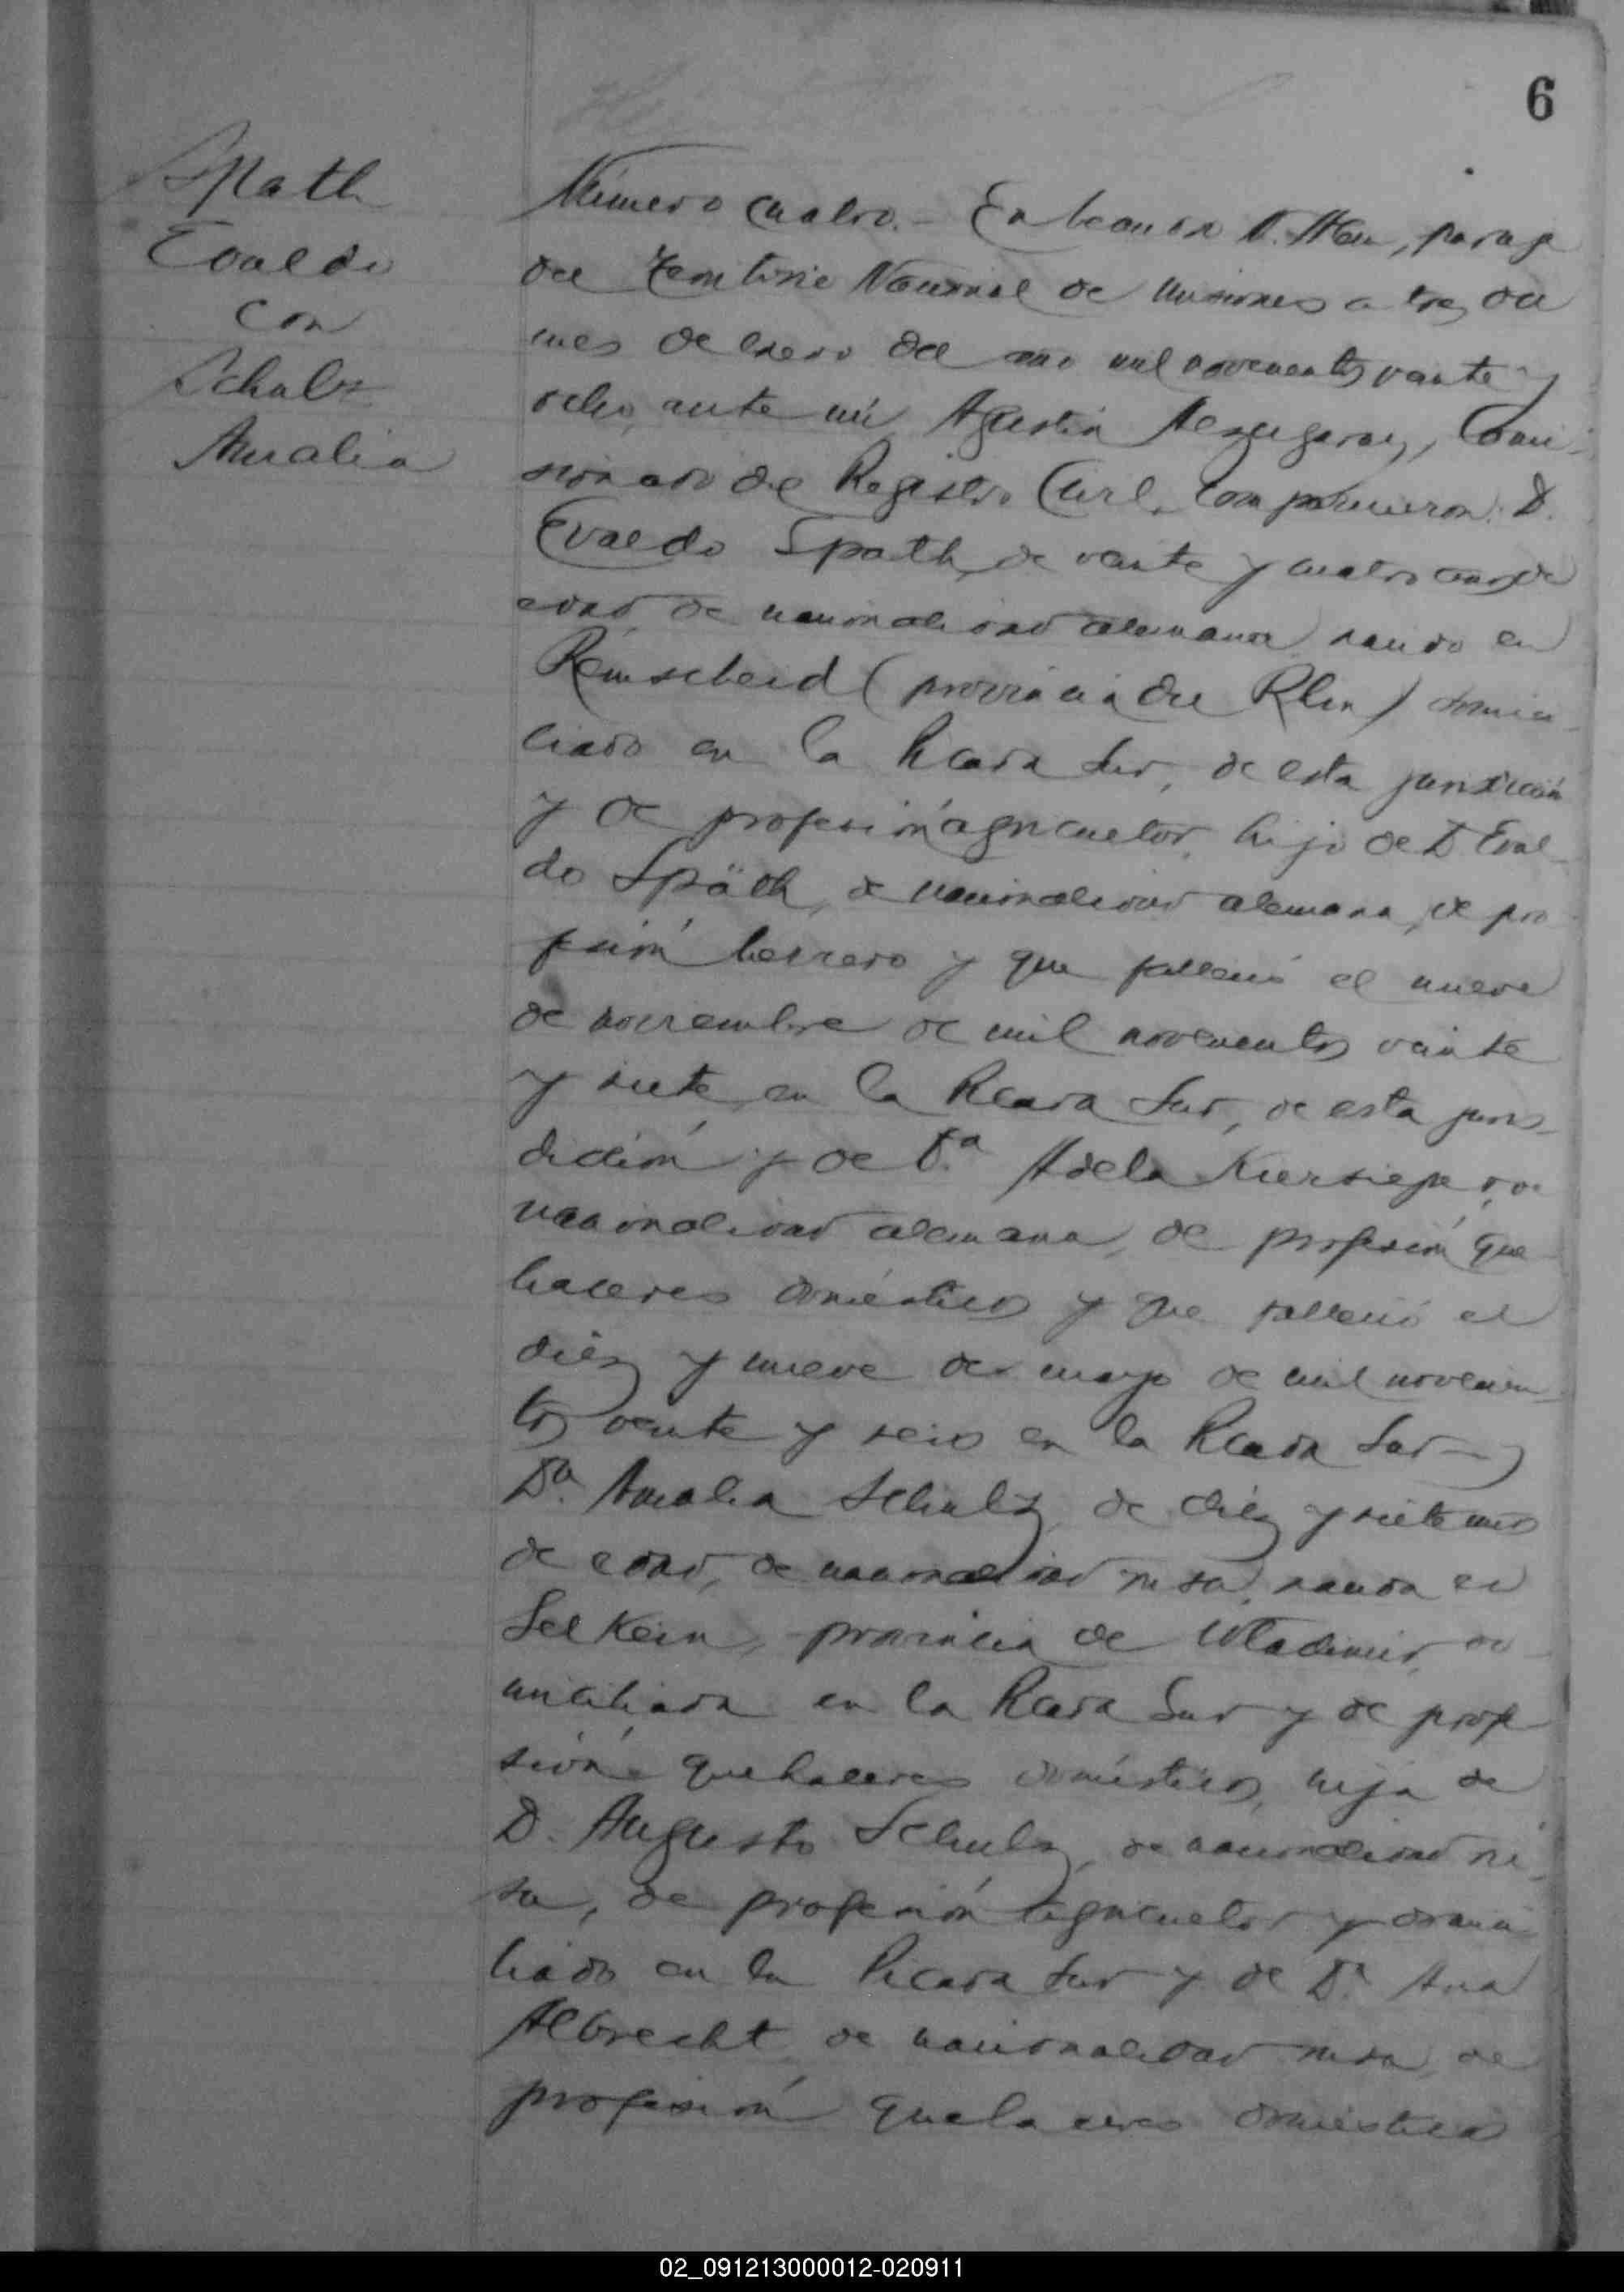 6
Spath
Evaldo
con
Schulz
Amalia
Número cuatro.- En Leandro N. Alem, paraje
del Territorio Nacional de Misiones a tres del
mes de enero del año mil novecientos veinte y
ocho, ante mí, Agustín, Comi-
sionado del Registro Civil, comparecieron: D.
Evaldo Spath, de veinte y cuatro años de
edad, de nacionalidad alemana, nacido en
Remscheid (provincia del Rhin) domici-
liado en la Picada Sur, de esta jurisdicción
y de profesión agricultor, hijo de D. Eval-
do Späth, de nacionalidad alemana, de pro-
fesión herrero y que falleció el nueve
de noviembre de mil novecientos veinte
y siete en la Picada Sur, de esta juris-
dicción y de Da. Adela Kiersieper, de
nacionalidad alemana, de profesión que-
haceres domésticos y que falleció el
diez y nueve de mayo de mil novecien-
tos veinte y seis en la Picada Sur y
Da. Amalia Schulz, de diez y siete años
de edad, de nacionalidad rusa, nacida en
Selkein, provincia de Wladimir, do-
miciliada en la Picada Sur y de profe-
sión quehaceres domésticos, hija de
D. Augusto Schulz, de nacionalidad ru-
sa, de profesión agricultor y domici-
liado en la Picada Sur y de Da. Ana
Albrecht, de nacionalidad rusa, de
profesión quehaceres domésticos
02_091213000012-020911